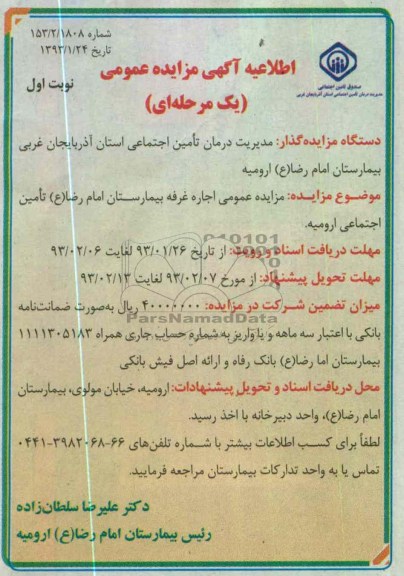 شماره ۱۵۳/۲/۱۸۰۸
تاریخ ۱۳۹۳/۱/۲۴
صندوق تأمین اجتماعی
مدیریت درمان تأمین اجتماعی استان آذربایجان غربی
اطلاعیه آگهی مزایده عمومی
(یک مرحله‌ای)
نوبت اول
دستگاه مزایده‌گذار: مدیریت درمان تأمین اجتماعی استان آذربایجان غربی
بیمارستان امام رضا(ع) ارومیه
موضوع مزایـــده: مزایده عمومی اجاره غرفه بیمارســتان امام رضا(ع) تأمین
اجتماعی ارومیه.
مهلت دریافت اسناد و رویت: از تاریخ ۹۳/۰۱/۲۶ لغایت ۹۳/۰۲/۰۶
مهلت تحویل پیشنهاد: از مورخ ۹۳/۰۲/۰۷ لغایت ۹۳/۰۲/۱۳
میزان تضمین شــرکت در مزایده: ۴۰۰۰۰۰۰۰ ریال به‌صورت ضمانت‌نامه
ParsNamadData
بانکی با اعتبار سه ماهه و یا واریز به شماره حساب جاری همراه ۱۱۱۱۳۰۵۱۸۳
بیمارستان اما رضا(ع) بانک رفاه و ارائه اصل فیش بانکی
محل دریافت اسناد و تحویل پیشنهادات: ارومیه، خیابان مولوی، بیمارستان
امام رضا(ع)، واحد دبیرخانه با اخذ رسید.
لطفاً برای کســب اطلاعات بیشتر با شــماره تلفن‌های ۶۶-۳۹۸۲۰۶۸-۰۴۴۱
تماس یا به واحد تدارکات بیمارستان مراجعه فرمایید.
دکتر علیرضا سلطان‌زاده
رئیس بیمارستان امام رضا(ع) ارومیه